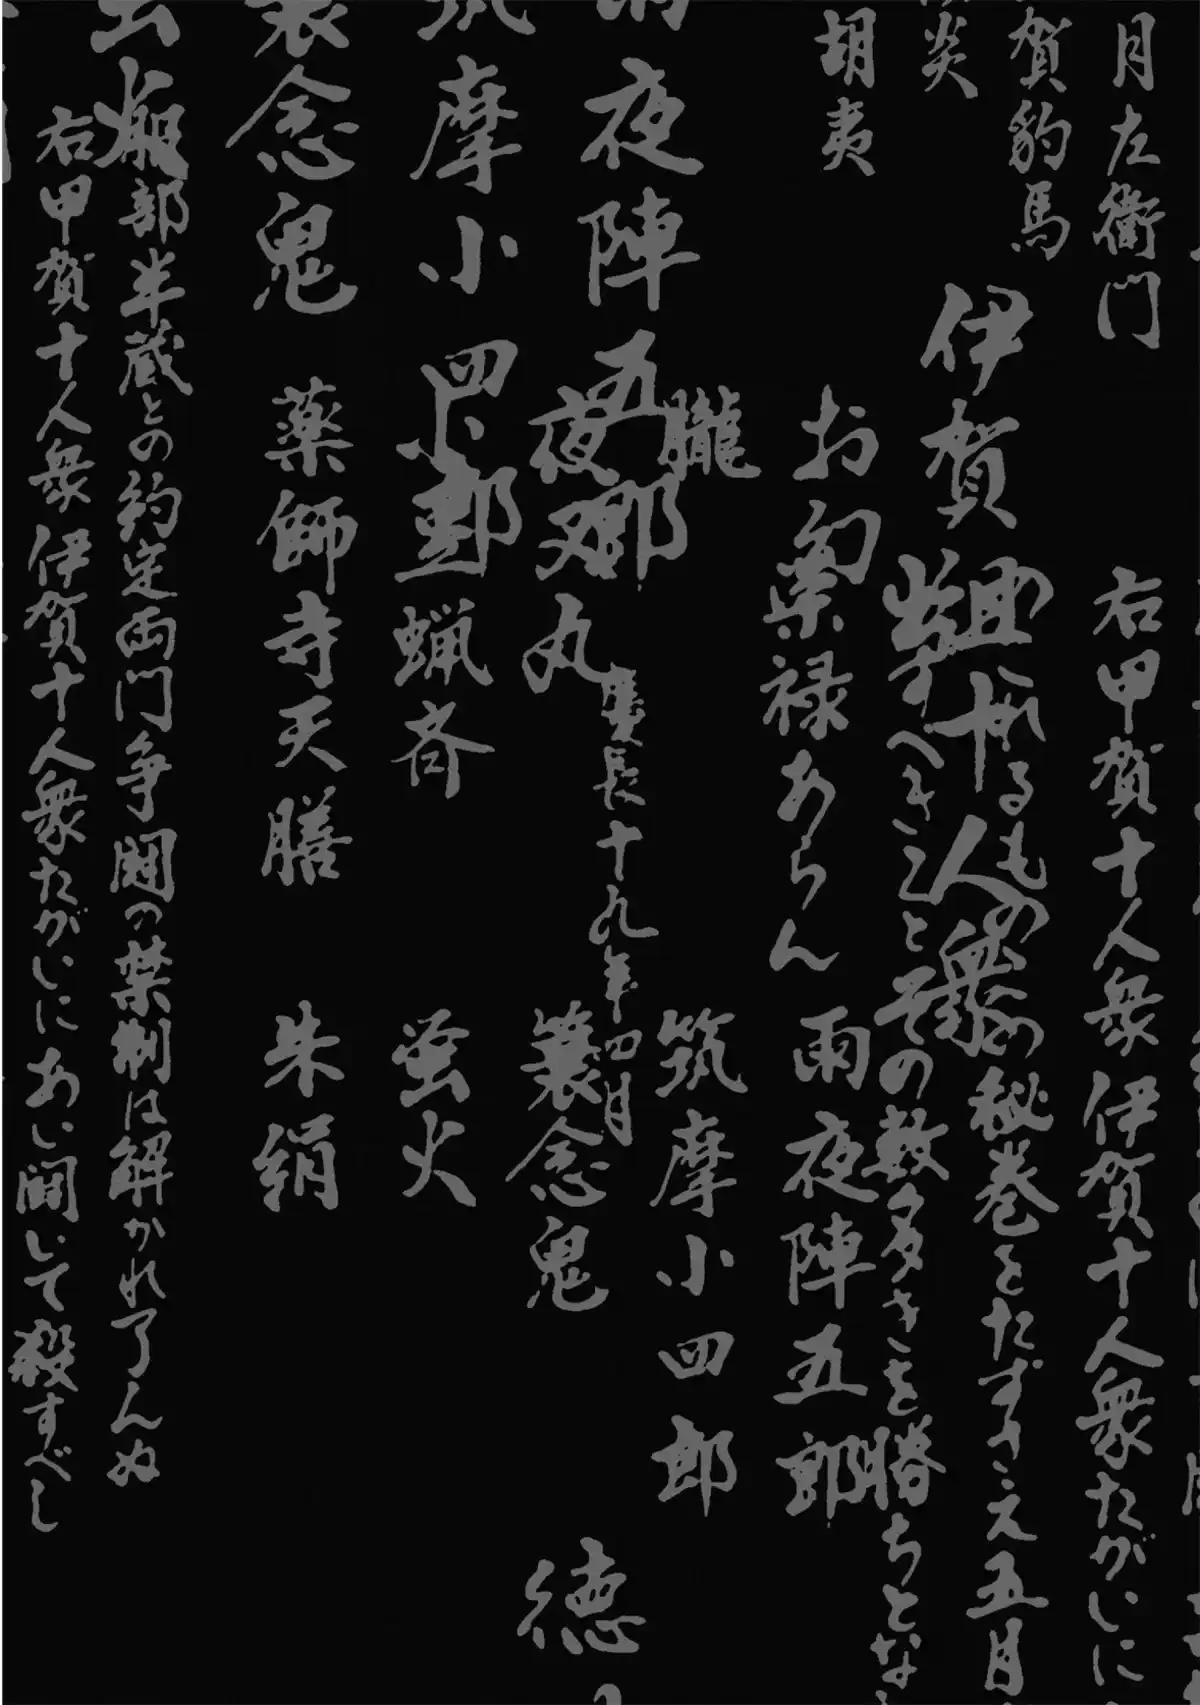 月左衛門
右甲賀十人衆伊賀十人衆たがいに
賀豹馬
炎
伊賀
十人衆
かゝるものへこの秘巻をたずさえ五月
出すべきことその数多きを勝ちとな
胡夷
お胡夷
禄あらん
雨夜陣五郎
夜陣五郎
朧
筑摩小四郎
慶長十九年四月
夜叉丸
蓑念鬼
徳
摩小四郎
小豆蝋斉
蛍火
念鬼
薬師寺天膳
朱絹
服部半蔵との約定両門争闘の禁制は解かれ了んぬ
右甲賀十人衆伊賀十人衆たがいにあい闘いて殺すべし